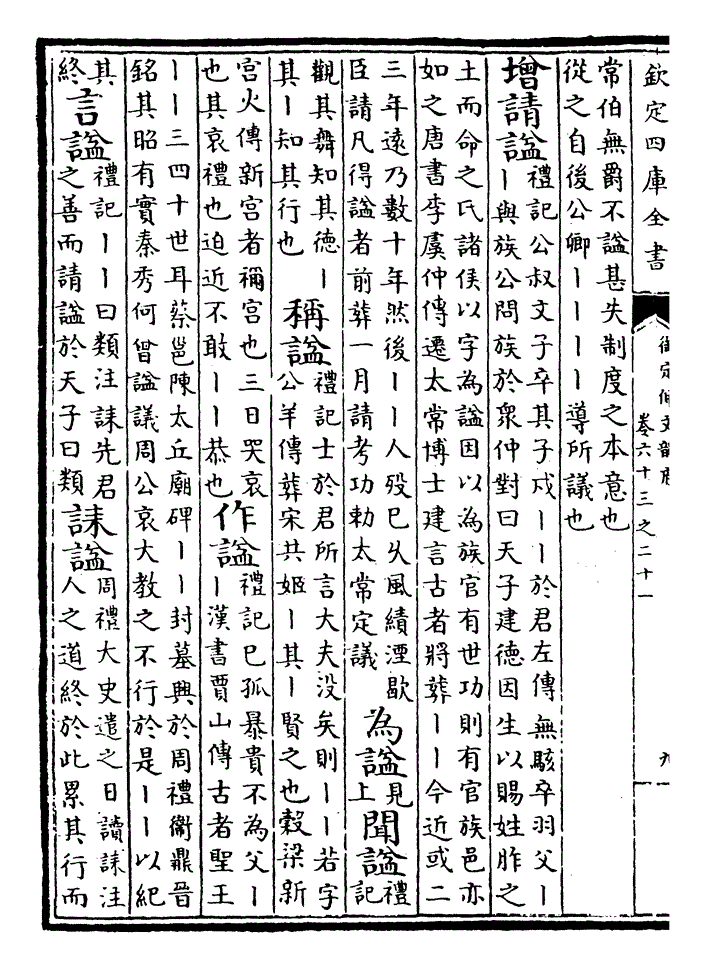 欽定四庫全書
御定佩文韻府
卷六十三之二十一
九
常伯無爵不諡甚失制度之本意也
從之自後公卿丨丨丨丨導所議也
增請諡
禮記公叔文子卒其子戍丨丨於君左傳無駭卒羽父丨
丨與族公問族於衆仲對曰天子建德因生以賜姓胙之
土而命之氏諸侯以字為諡因以為族官有世功則有官族邑亦
如之唐書李虞仲傳遷太常博士建言古者將葬丨丨今近或二
三年遠乃數十年然後丨丨人殁已久風績湮歇
臣請凡得諡者前葬一月請考功勅太常定議
為諡
見
上
聞諡
禮
記
觀其舞知其德丨
其丨知其行也
稱諡
禮記士於君所言大夫没矣則丨丨若字
公羊傳葬宋共姬丨其丨賢之也穀梁新
宮火傳新宮者禰宮也三日哭哀
也其哀禮也迫近不敢丨丨恭也
作諡
禮記已孤暴貴不為父丨
丨漢書賈山傳古者聖王
丨丨三四十世耳蔡邕陳太丘廟碑丨丨封墓興於周禮衞鼎晉
銘其昭有實秦秀何曾諡議周公哀大教之不行於是丨丨以紀
其
終
言諡
禮記丨丨曰類注誄先君
之善而請諡於天子曰類
誄諡
周禮大史遣之日讀誄注
人之道終於此累其行而